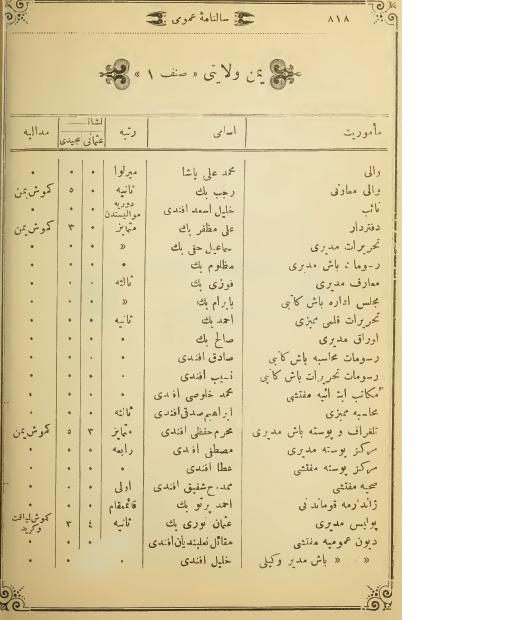 ٨١٨ سالنامهٔ عمومی
یمن ولایتی « صنف ١ »
مأموریت اسامی رتبه نشان مدالیه
عثمانی مجیدی
والی محمد علی پاشا میرلوا • • •
والی معاونی رجب بك ثانیه • ٥ کموش یمن
نائب خلیل اسعد افندی دوریه موالیسندن • • •
دفتردار علی مظفر بك متمایز • ٣ کموش یمن
تحریرات مدیری سماعیل حقی بك « • • •
رسومات باش مدیری مظلوم بك • • • •
معارف مدیری فوزی بك ثالثه • • •
مجلس اداره باش کاتبی بایرام بك « • • •
تحریرات قلمی ممیزی احمد بك ثانیه • • •
اوراق مدیری صالح بك • • • •
رسومات محاسبه باش کاتبی صادق افندی • • • •
رسومات تحریرات باش کاتبی نسیب افندی • • • •
مکاتب ابتدائیه مفتشی محمد خلوصی افندی • • • •
محاسبه ممیزی ابراهیم صدقی افندی ثالثه • • •
تلغراف و پوسته باش مدیری محرم حفظی افندی متمایز ٣ ٥ کموش یمن
مرکز پوسته مدیری مصطفی افندی رابعه • • •
مرکز پوسته مفتشی عطا افندی • • • •
صحیه مفتشی شفیق افندی اولی • • •
ژاندارمه قوماندانی احمد پرتو بك قائممقام • • •
پولیس مدیری عثمان نوری بك ثانیه ٤ ٣ کموش لیاقت وکرید
دیون عمومیه مفتشی افندی • • •
« « باش مدیر وکیلی خلیل افندی • • • •